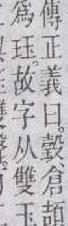 傳正義曰瑴倉頡
爲珏故字从雙玉